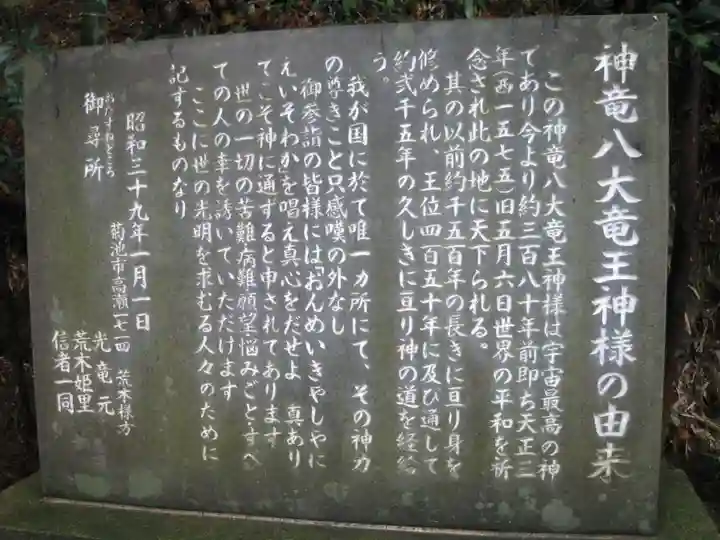 神竜八大竜王神様の由来
この神竜八大竜王神様は宇宙最高の神
であり今より約三百八十年前即ち天正三
年(西一五七五)旧五月六日世界の平和を祈
念され此の地に天下られる。
其の以前約千五百年の長きに亘り身を
修められ、王位四百五十年に及び通して
約弐千五年の久しきに亘り神の道を経給
う。
我が国に於て唯一カ所にて、その神力
の尊きこと只感嘆の外なし
御参詣の皆様には「おんめいきゃしゃに
えいそわか」を唱え真心をだせよ 真あり
てこそ神に通ずると申されてあります
世の一切の苦難病難願望悩みごとすべ
ての人の幸を誘いていただけます
ここに世の光明を求むる人々のために
記するものなり
昭和三十九年一月一日
御尋所
おたずねところ
菊池市高瀬一七一四 荒木様方
光竜元
荒木姫里
信者一同